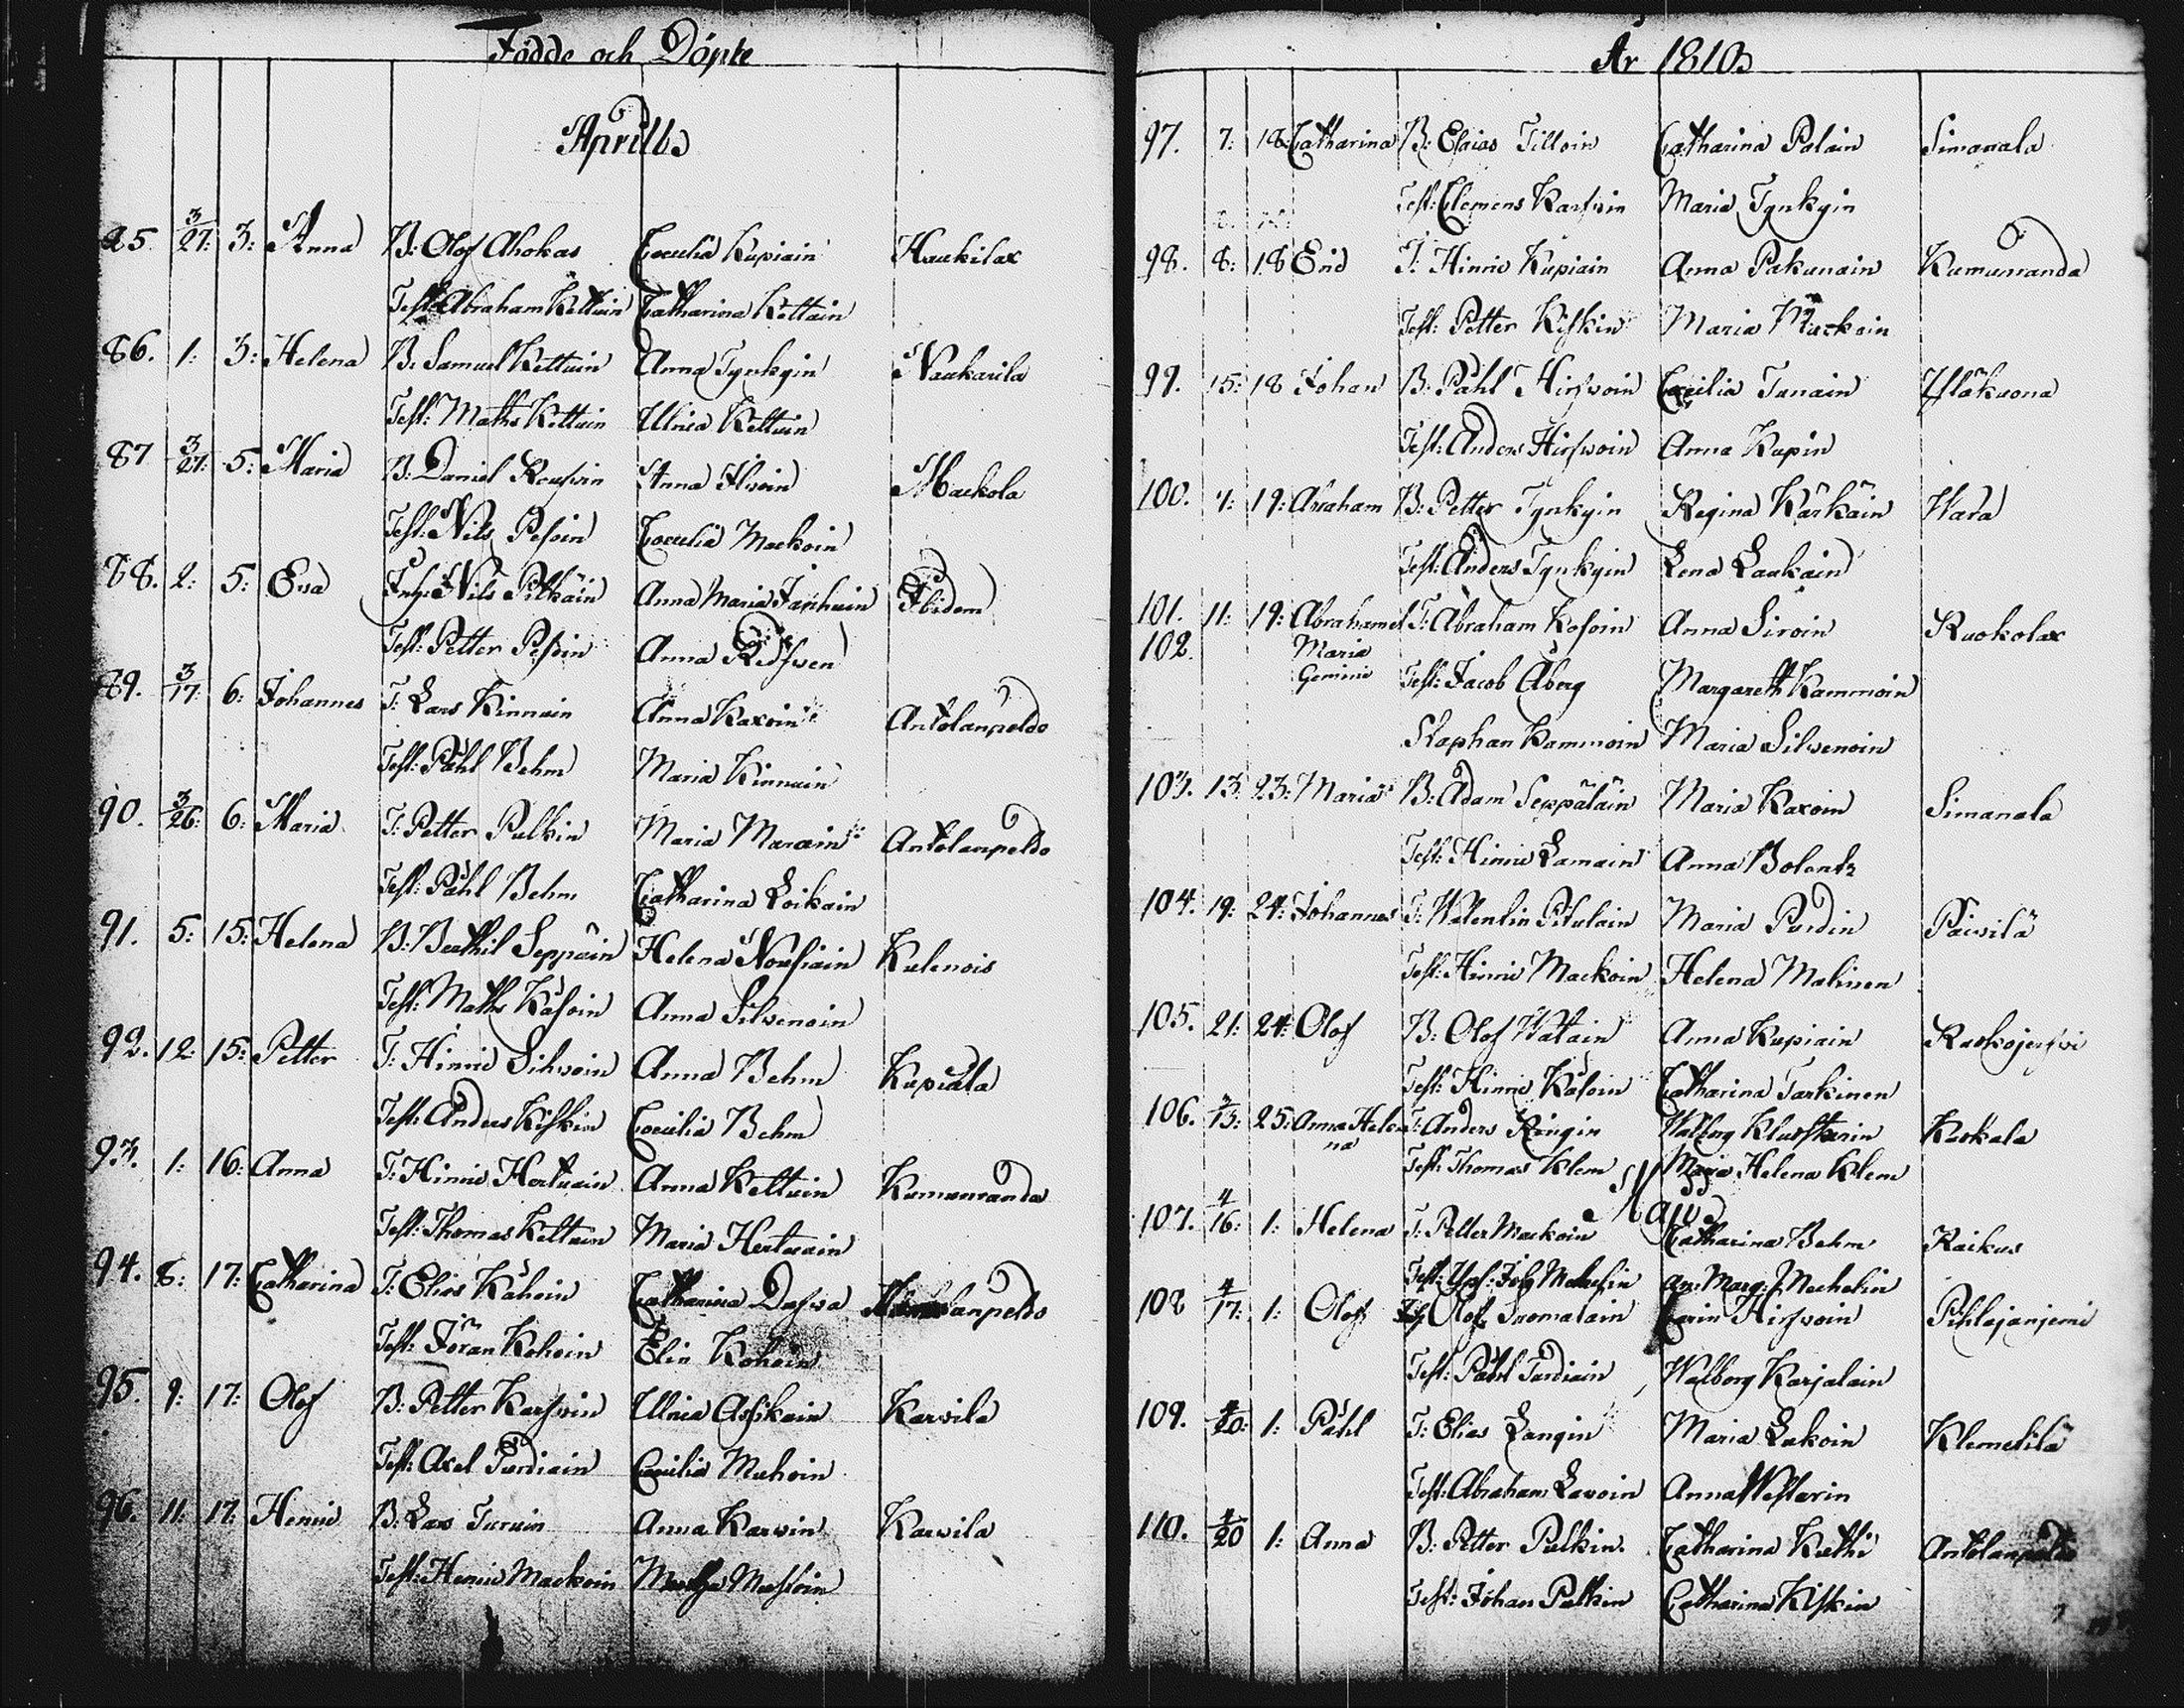 Födde och Döpte
Aprills
85 3/27: 3: Anna B: Olof Ahokas Coeculia Kupiain Haukilax
Test: Abraham Kettuin Catharina Kettain
86. 1: 3: Helena B: Samuel Kettuin Anna Tynkyin Naukarila
Test: Maths Kettuin Ulrica Kettuin
87 3/27: 5: Maria B: Daniel Anna Ilwoin Mackola
Test: Nils Pesoin Coeculia Mackoin
88. 2: 5: Eva Inh: Nils Pitkäin Anna Maria Janhuin Ibidem
Test: Petter Anna
89. 3/17: 6: Johannes T: Lars Kinnain Anna Kaxoin Antolanpeldo
Test: Påhl Behm Maria Kinnuin
90. 3/26: 6: Maria T: Petter Pulkin Maria Antolanpeldo
Test: Påhl Behm Catharina Loikain
91. 5: 15: Helena B: Berthil Seppäin Helena Nousiain Kulenois
Test: Maths Käsoin Anna Silvenoin
92. 12: 15: Petter T: Hinric Sihvoin Anna Behm Kupiala
Test: Anders Kiskin Coeculia Behm
93. 1: 16: Anna T: Hinric Hertuain Anna Kettuin Kumunranda
Test: Thomas Kettuin Maria Hertuain
94. 8: 17: Catharina T: Elias Kåhoin Catharina Dasva
Test: Jöran Kohoin Elin Kohoin
95. 9: 17: Olof B: Petter Karsvin Ulrica Assikain Karvila
Test: Axel Purdiain Coeculia Muhoin
96. 11: 17: Henric B: Lars Turuin Anna Karvin Karvila
Test: Henric Mackoin
År 1810
97. 7: 18: Catharina B: Esaias Tilloin Catharina Polain Simanala
Test: Clemens Karsvin Maria Tynkyin
98. 8: 18 Eric T: Hinric Kupiain Anna Pakunain Kumunranda
Test: Petter Kiskin Maria Mackoin
99. 15: 18 Johan B: Påhl Hirsvoin Coecilia Tanain
Test: Anders Hirsvoin Anna Kupin
100. 4: 19: Abraham B: Petter Tynkyin Regina Kärkäin Wara
Test: Anders Tynkyin Lena Laukain
101. 11: 19: Abraham et T: Abraham Kosoin Anna Siroin Ruokolax
102. Maria
Gemini Test: Jacob Åberg Margareth Kammoin
Staphan Kammoin Maria Silvenoin
103. 13: 23: Maria B: Adam Seppäläin Maria Kaxoin Simanala
Test: Hinric Lamain Anna Bolentz
104. 19: 24: Johannes T: Valentin Pitulain Maria Purdin Päivilä
Test: Hinric Mackoin Helena Malinen
105. 21: 24: Olof B: Olof Watain Anna Kupiain
Test: Hinric Käsoin Catharina Tarkinen
106. 3/13: 25: Anna Hele T: Anders Ringin Walborg Kuokala
na Test: Thomas Klem Maria Helena Klem
Maji
107. 4/16: 1: Helena T: Petter Mackoin Catharina Behm Raikus
Test: Joh Mechelin An: Marg: Mechelin
108 4/17: 1: Olof Olof Suomalain Carin Hirsvoin Pihlajaniemi
Test: Påhl Purdiain Walborg Karjalain
109. 4/20: 1: Påhl T: Elias Langin Maria Lukoin Klemetilä
Test: Abraham Lavoin Anna Westarin
110. 4/20 1: Anna B: Petter Pulkin Catharina Kuthi Antolanpeldo
Test: Johan Pulkin Catharina Kiskin